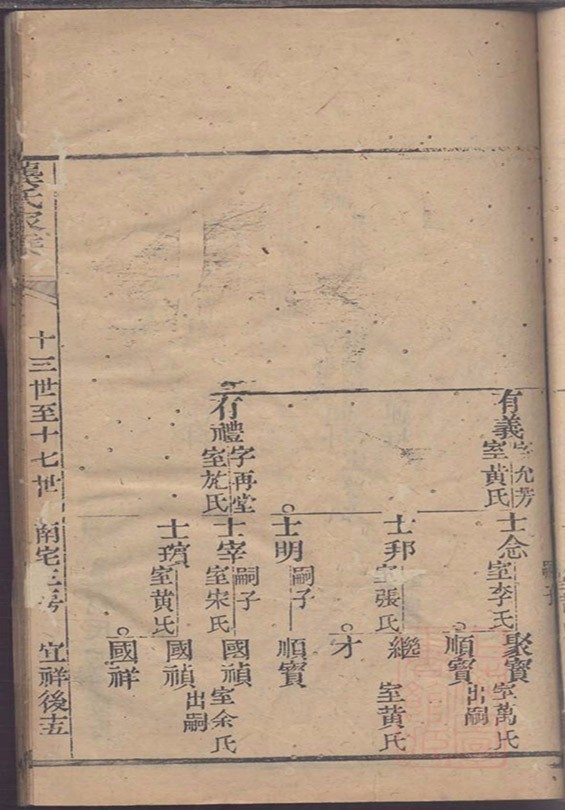 有義
字允芳
室黄氏
士念
室李氏
聚寳
室萬氏
順寳
出嗣
士邦
室張氏
繼
室黄氏
才
士明
嗣子
順寳
有禮
字再堂
室尨氏
士宰
嗣子
室宋氏
國禎
室余氏
士璸
室黄氏
國禎
出嗣
國祥
龔氏家乘
十三世至十七世
南宅三房
宜祥後